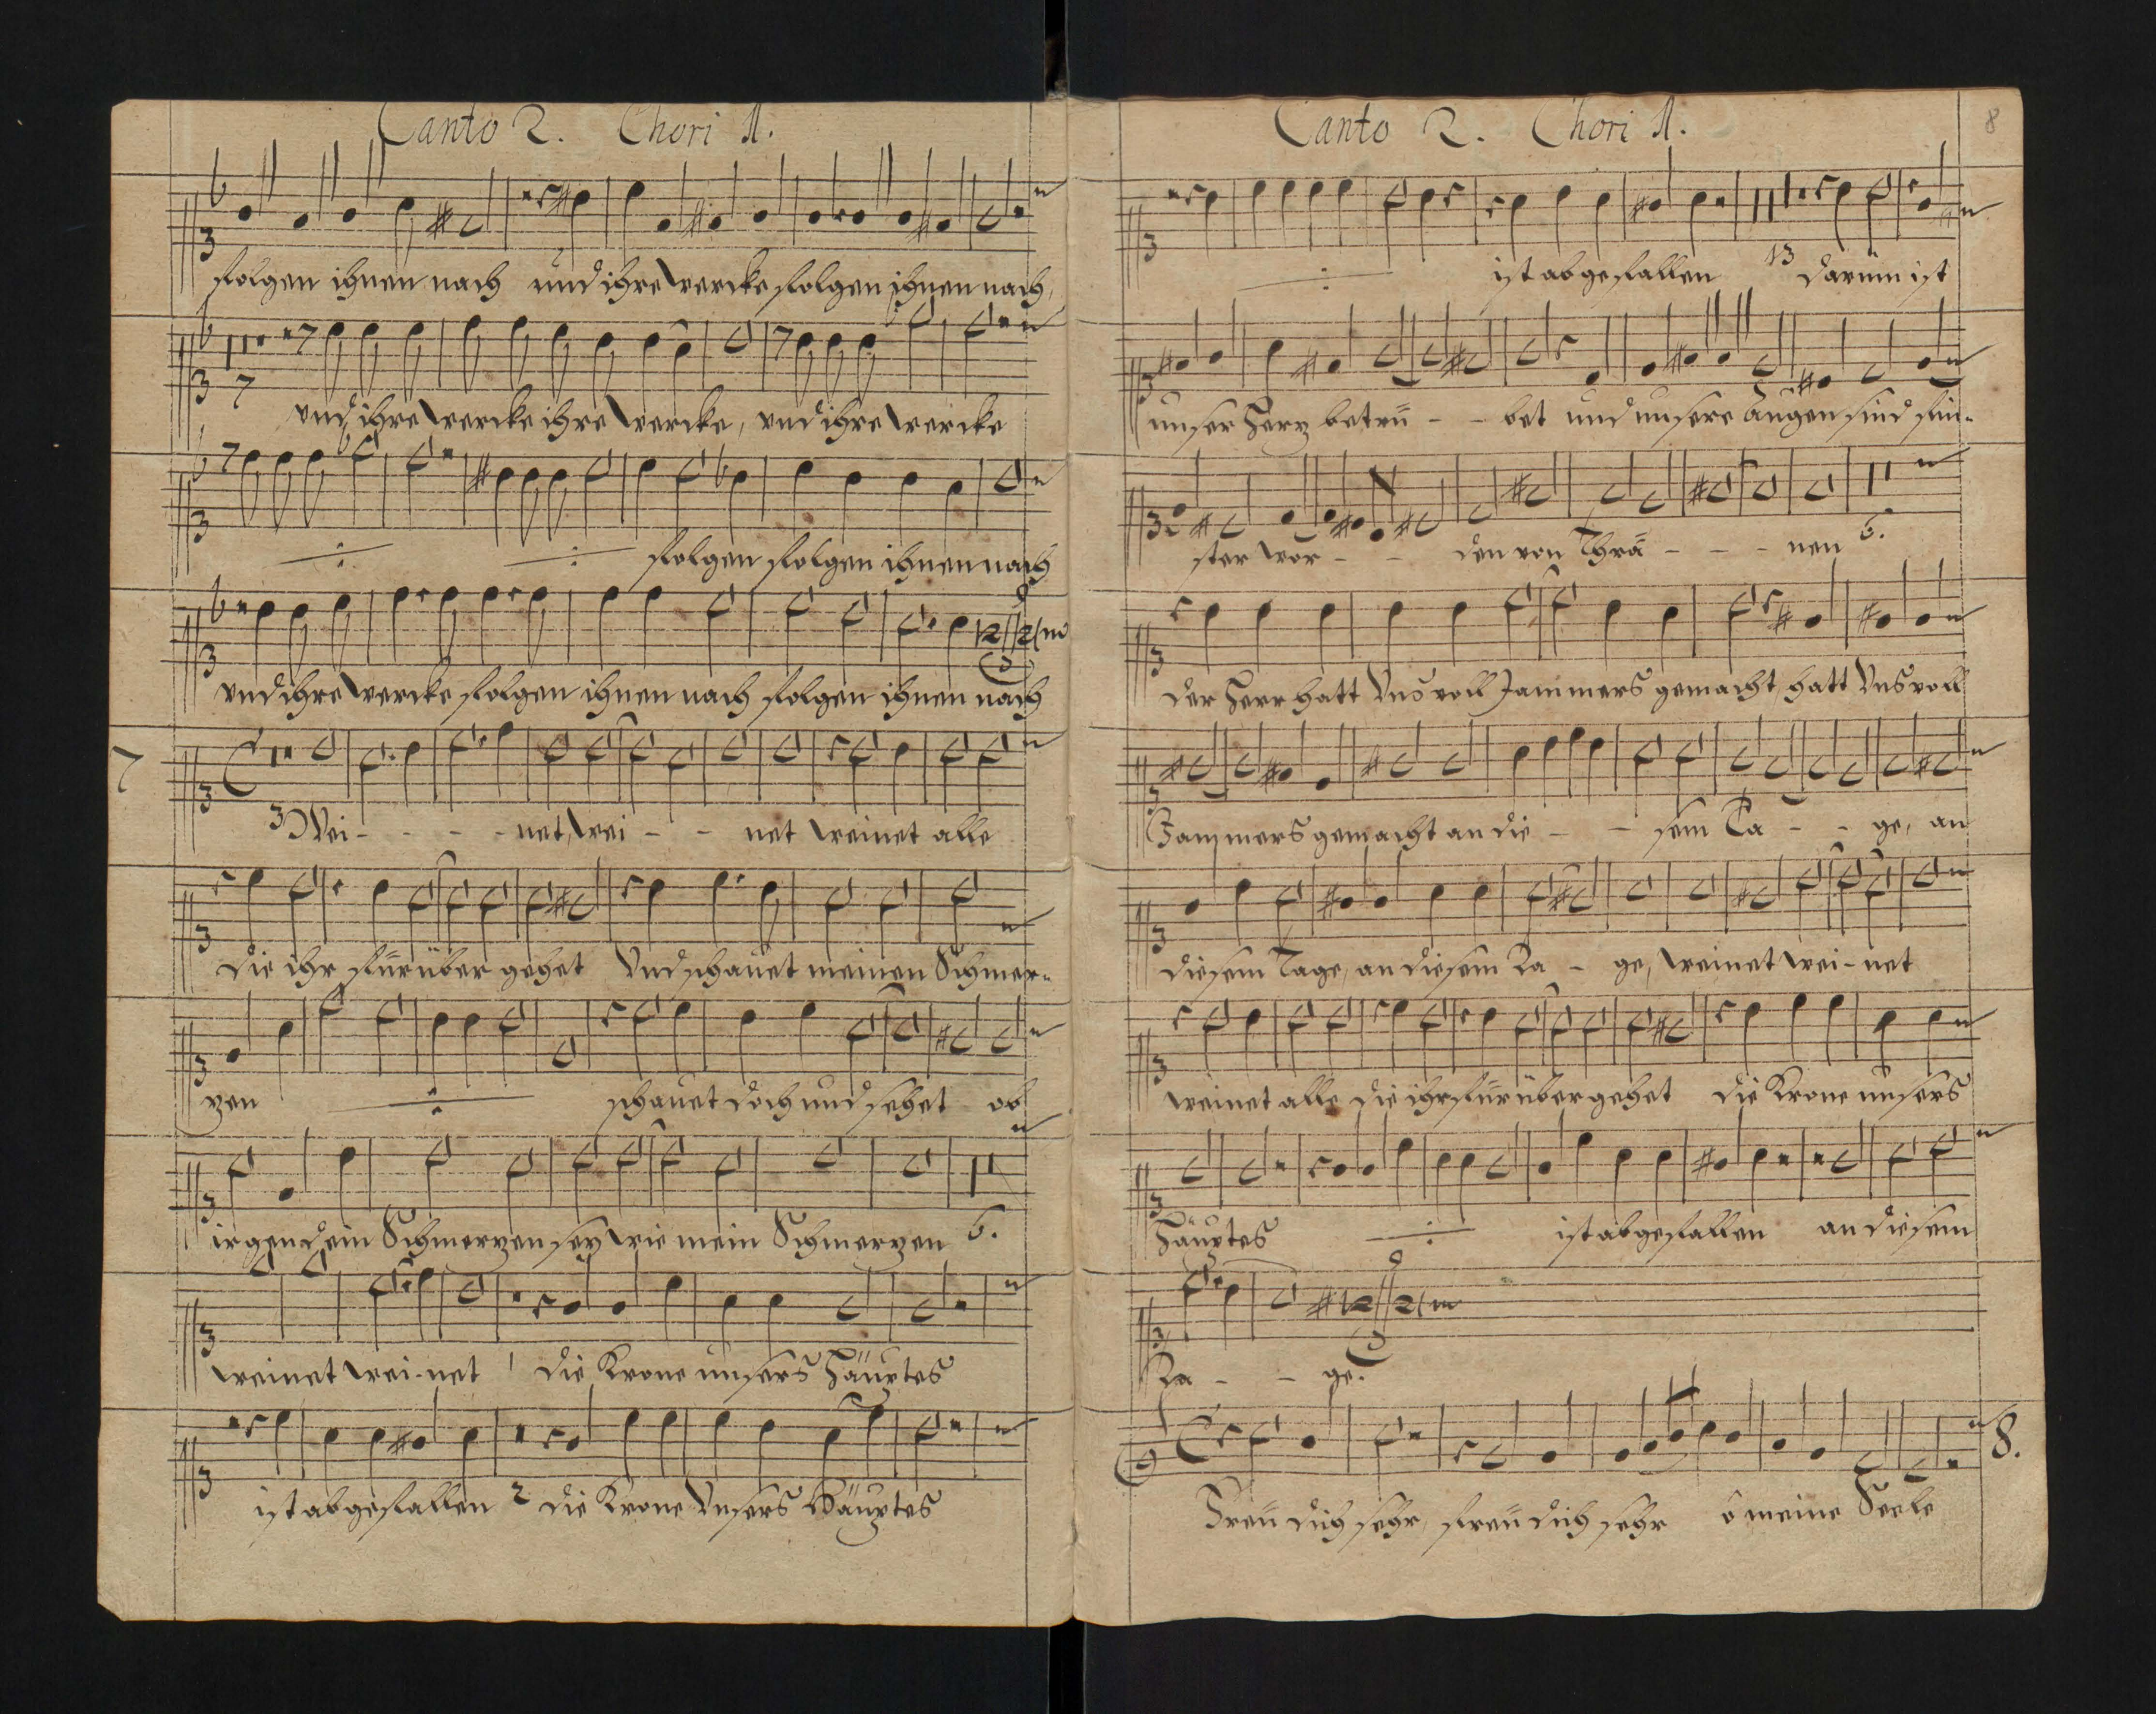 Canto 2. Chori 1.
folgen ihnen nach und ihre wercke folgen ihnen nach,
7
und ihre wercke ihre wercke, und ihre wercke
folgen folgen ihnen nach
und ihre wercke folgen ihnen nach folgen ihnen nach
7
3 Wei - - - - net, wei - - net weinet alle
die ihr fürüber gehet Und schauet meinen Schmer-
zen schauet doch und sehet ob
irgend ein Schmerzen sey wie mein Schmerzen 6.
weinet wei-net 1 die Krone unsers Häuptes
ist abgefallen 2 die Krone Unsers Häuptes
Canto 2. Chori 1.
8
ist abgefallen 13 darüm ist
unser Herz betrü - - bet und unsere Augen sind fin-
ster wor - - den von Thrä - - - nen 6.
der Herr hatt Uns voll Jammers gemacht, hatt Uns voll
Jammers gemacht an die - - sem Ta - - ge, an
diesem Tage, an diesem Ta - ge, weinet wei-net
weinet alle die ihr fürüber gehet die Krone unsers
Häuptes ist abgefallen an diesem
Ta - - ge.
8.
Freü dich sehr, freü dich sehr o meine Seele